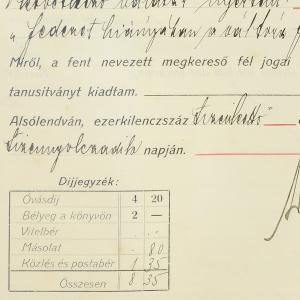 „fedezet hiányában a váltó
Miről, a fent nevezett megkereső fél jogai
tanusitványt kiadtam.
Alsólendván, ezerkilenczszáz tizenkettő
tizennyolczadik napján.
Díjjegyzék:
Óvásdíj 4 20
Bélyeg a könyvön 2 —
Vitelbér
Másolat . 80
Közlés és postabér 1 35
Összesen 8 35